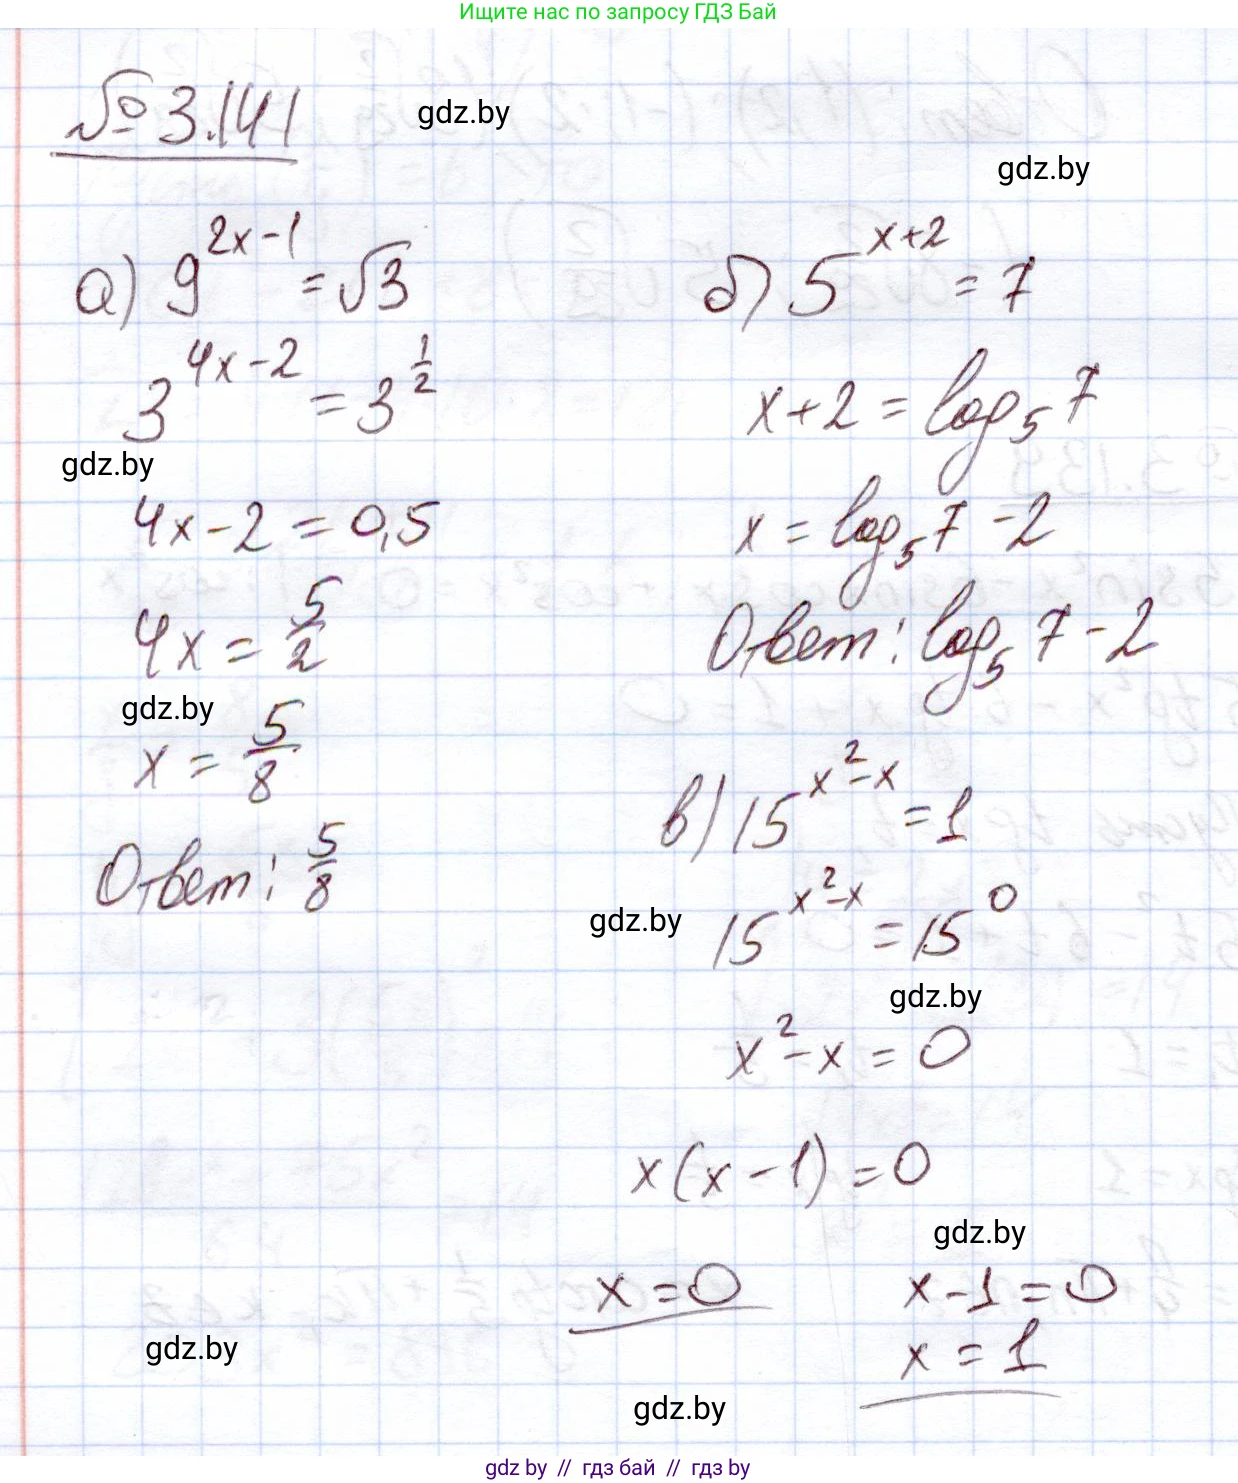 Ищите нас по запросу ГДЗ Бай
№ 3.141
gdz.by
gdz.by
а) 9^(2x-1) = √3
3^(4x-2) = 3^(1/2)
gdz.by
4x-2 = 0,5
4x = 5/2
gdz.by
x = 5/8
Ответ: 5/8
б) 5^(x+2) = 7
x+2 = log₅7
x = log₅7 -2
Ответ: log₅7 -2
в) 15^(x²-x) = 1
gdz.by
15^(x²-x) = 15^0
gdz.by
x²-x = 0
x(x-1) = 0
gdz.by
x = 0
x-1 = 0
x = 1
gdz.by
gdz.by
gdz by // гдз бай // гдз by